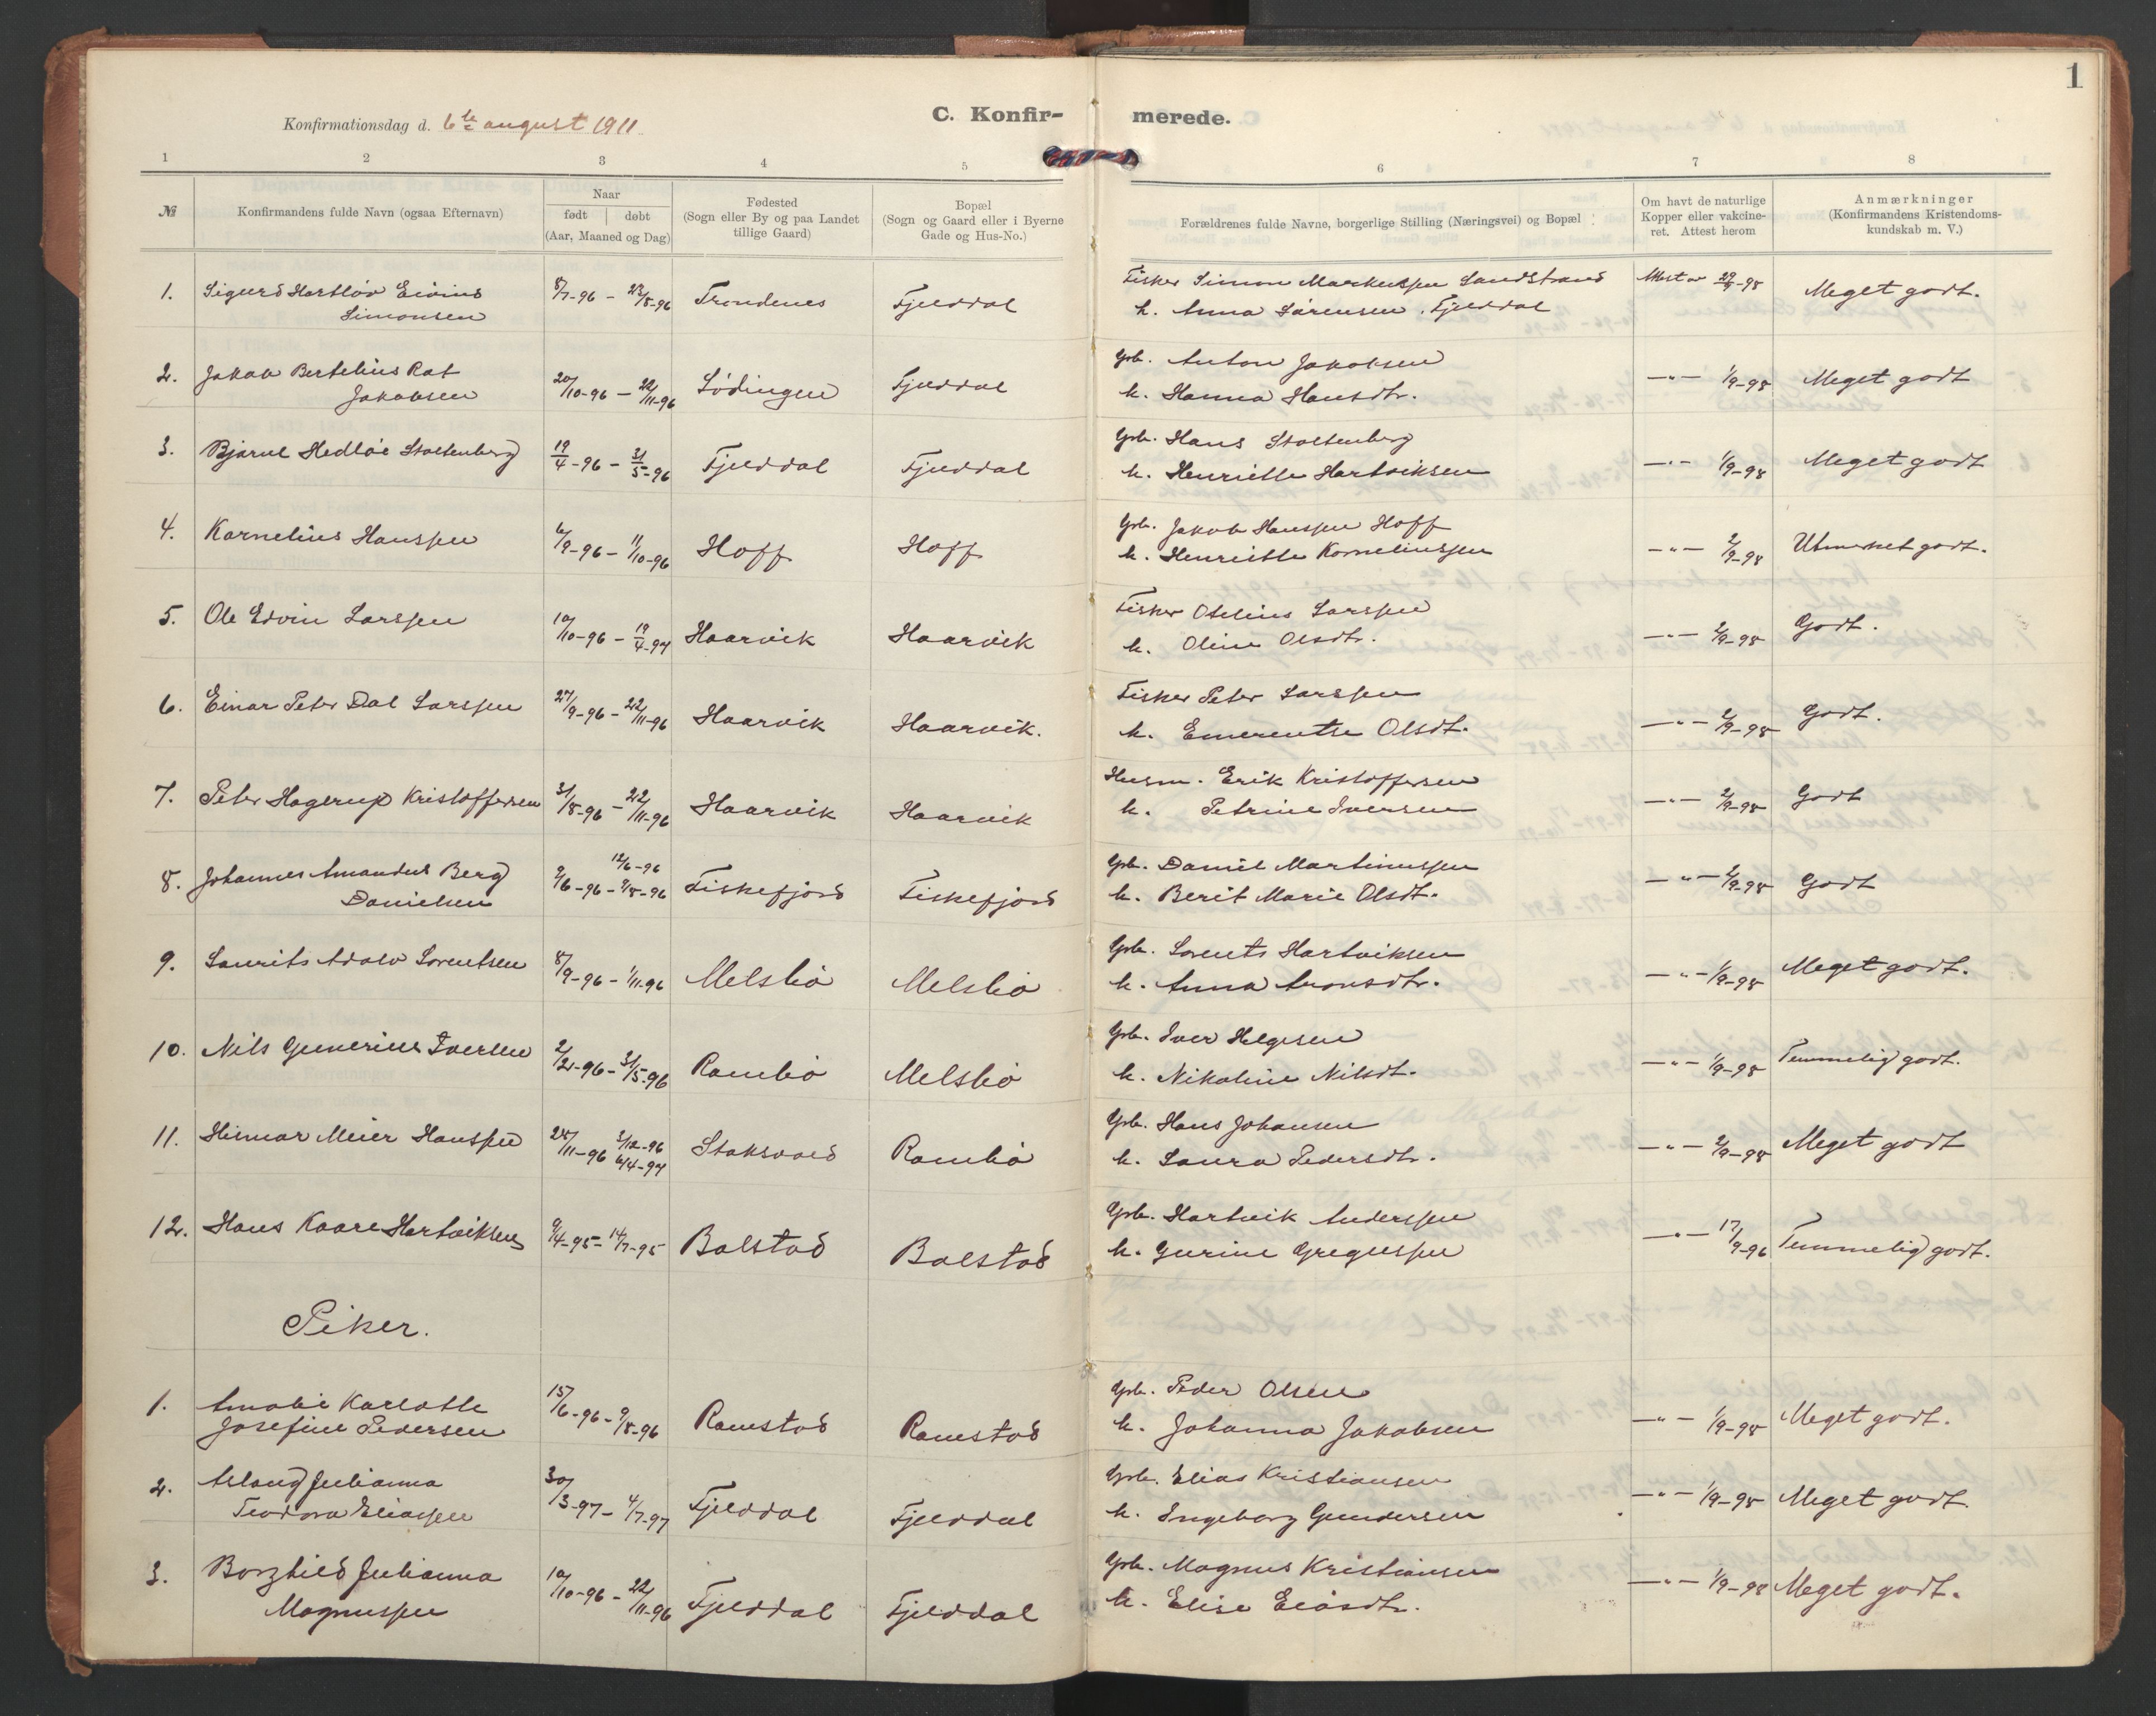 1
Konfirmationsdag d. 6te august 1911.
C. Konfir-
merede.
1 2 3 4 5 6 7 8
№
Konfirmandens fulde Navn (ogsaa Efternavn)
Naar
født | døbt
(Aar, Maaned og Dag)
Fødested
(Sogn eller By og paa Landet
tillige Gaard)
Bopæl
(Sogn og Gaard eller i Byerne
Gade og Hus-No.)
Forældrenes fulde Navne, borgerlige Stilling (Næringsvei) og Bopæl
Om havt de naturlige
Kopper eller vakcine-
ret. Attest herom
Anmærkninger
(Konfirmandens Kristendoms-
kundskab m. V.)
1. Sigurd Hartløv Eivind 8/7-96 - 23/8-96 Trondenes Fjelddal Fisker Simon Markussen Sandstrand Attest av 29/8-98 Meget godt.
Simonsen h. Anna Sørensen, Fjelddal
2. Jakob Bertelius Rat 20/10-96 - 22/11-96 Lødingen Fjelddal Grb. Anton Jakobsen —"— 1/9-98 Meget godt
Jakobsen h. Hanna Hansdtr.
3. Bjarne Hedløv Stoltenberg 19/4-96 - 31/5-96 Fjelddal Fjelddal Grb. Hans Stoltenberg —"— 1/9-98 Meget godt
h. Henriette Hartviksen
4. Kornelius Hanssen 6/9-96 - 11/10-96 Hoff Hoff Grb. Jakob Hanssen Hoff —"— 2/9-98 Utmerket godt.
h. Henriette Korneliussen
5. Ole Edvin Larssen 10/10-96 - 19/4-97 Haarvik Haarvik Fisker Otelius Larssen —"— 2/9-98 Godt.
h. Oline Olsdtr.
6. Einar Peter Dal Larssen 27/9-96 - 22/11-96 Haarvik Haarvik. Fisker Peter Larssen —"— 2/9-98 Godt.
h. Emerentse Olsdt.
7. Peter Hagerup Kristoffersen 31/8-96 - 22/11-96 Haarvik Haarvik Husm. Erik Kristoffersen —"— 2/9-98 Godt
h. Petrine Iversen
8. Johannes Amandus Berg 9/6-96 - 12/6-96 9/8-96 Fiskefjord Fiskefjord Grb. Daniel Martinussen —"— 2/9-98 Godt
Danielsen h. Berit Marie Olsdt.
9. Laurits Adolv Lorentsen 8/9-96 - 1/11-96 Melsbø Melsbø Grb. Lorents Hartviksen —"— 1/9-98 Meget godt.
h. Anna Aronsdtr.
10. Nils Gunerius Iversen 2/2-96 - 31/5-96 Rambø Melsbø Grb. Iver Helgesen —"— 1/9-98 Temmelig godt.
h. Nikoline Nilsdt.
11. Hilmar Meier Hanssen 24/11-96 3/12-96 6/4-97 Staksvold Rambø Grb. Hans Johansen —"— 2/9-98 Meget godt
h. Laura Pedersdtr.
12. Hans Kaare Hartviksen 9/4-95 - 14/7-95 Balstad Balstad Grb. Hartvik Anderssen —"— 17/9-96 Temmelig godt.
h. Gurine Gregussen
Piker.
1. Amalie Karlotte 15/6-96 - 9/8-96 Ramstad Ramstad Grb. Peder Olsen —"— 1/9-98 Meget godt.
Josefine Pedersen h. Johanna Jakobsen
2. Aslaug Julianna 30/3-97 - 4/7-97 Fjelddal Fjelddal Grb. Elias Kristiansen —"— 1/9-98 Meget godt.
Teodora Eliassen h. Ingeborg Gundersen
3. Borghild Julianna 10/10-96 - 22/11-96 Fjelddal Fjelddal Grb. Magnus Kristiansen —"— 1/9-98 Meget godt.
Magnussen h. Elise Eliasdtr.